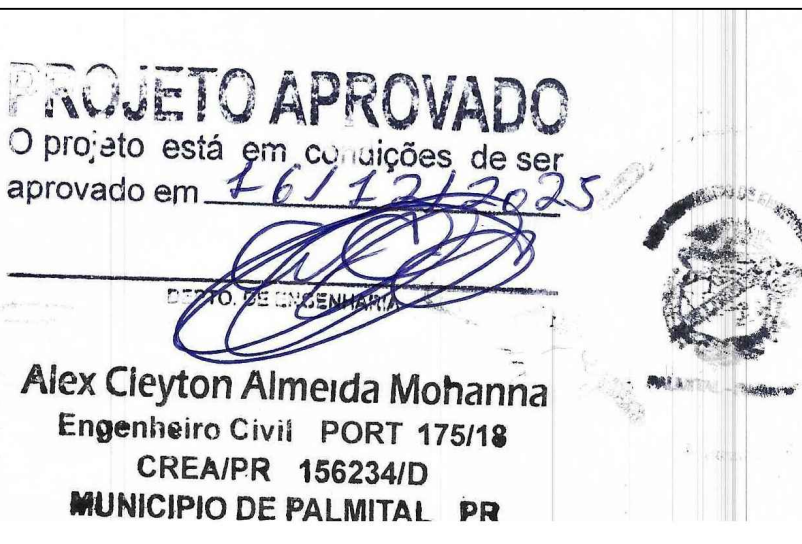 PROJETO APROVADO
O projeto está em condições de ser
aprovado em 16/12/2025
DEPTO. DE ENGENHARIA
Alex Cleyton Almeida Mohanna
Engenheiro Civil PORT 175/18
CREA/PR 156234/D
MUNICIPIO DE PALMITAL PR
PALMITAL